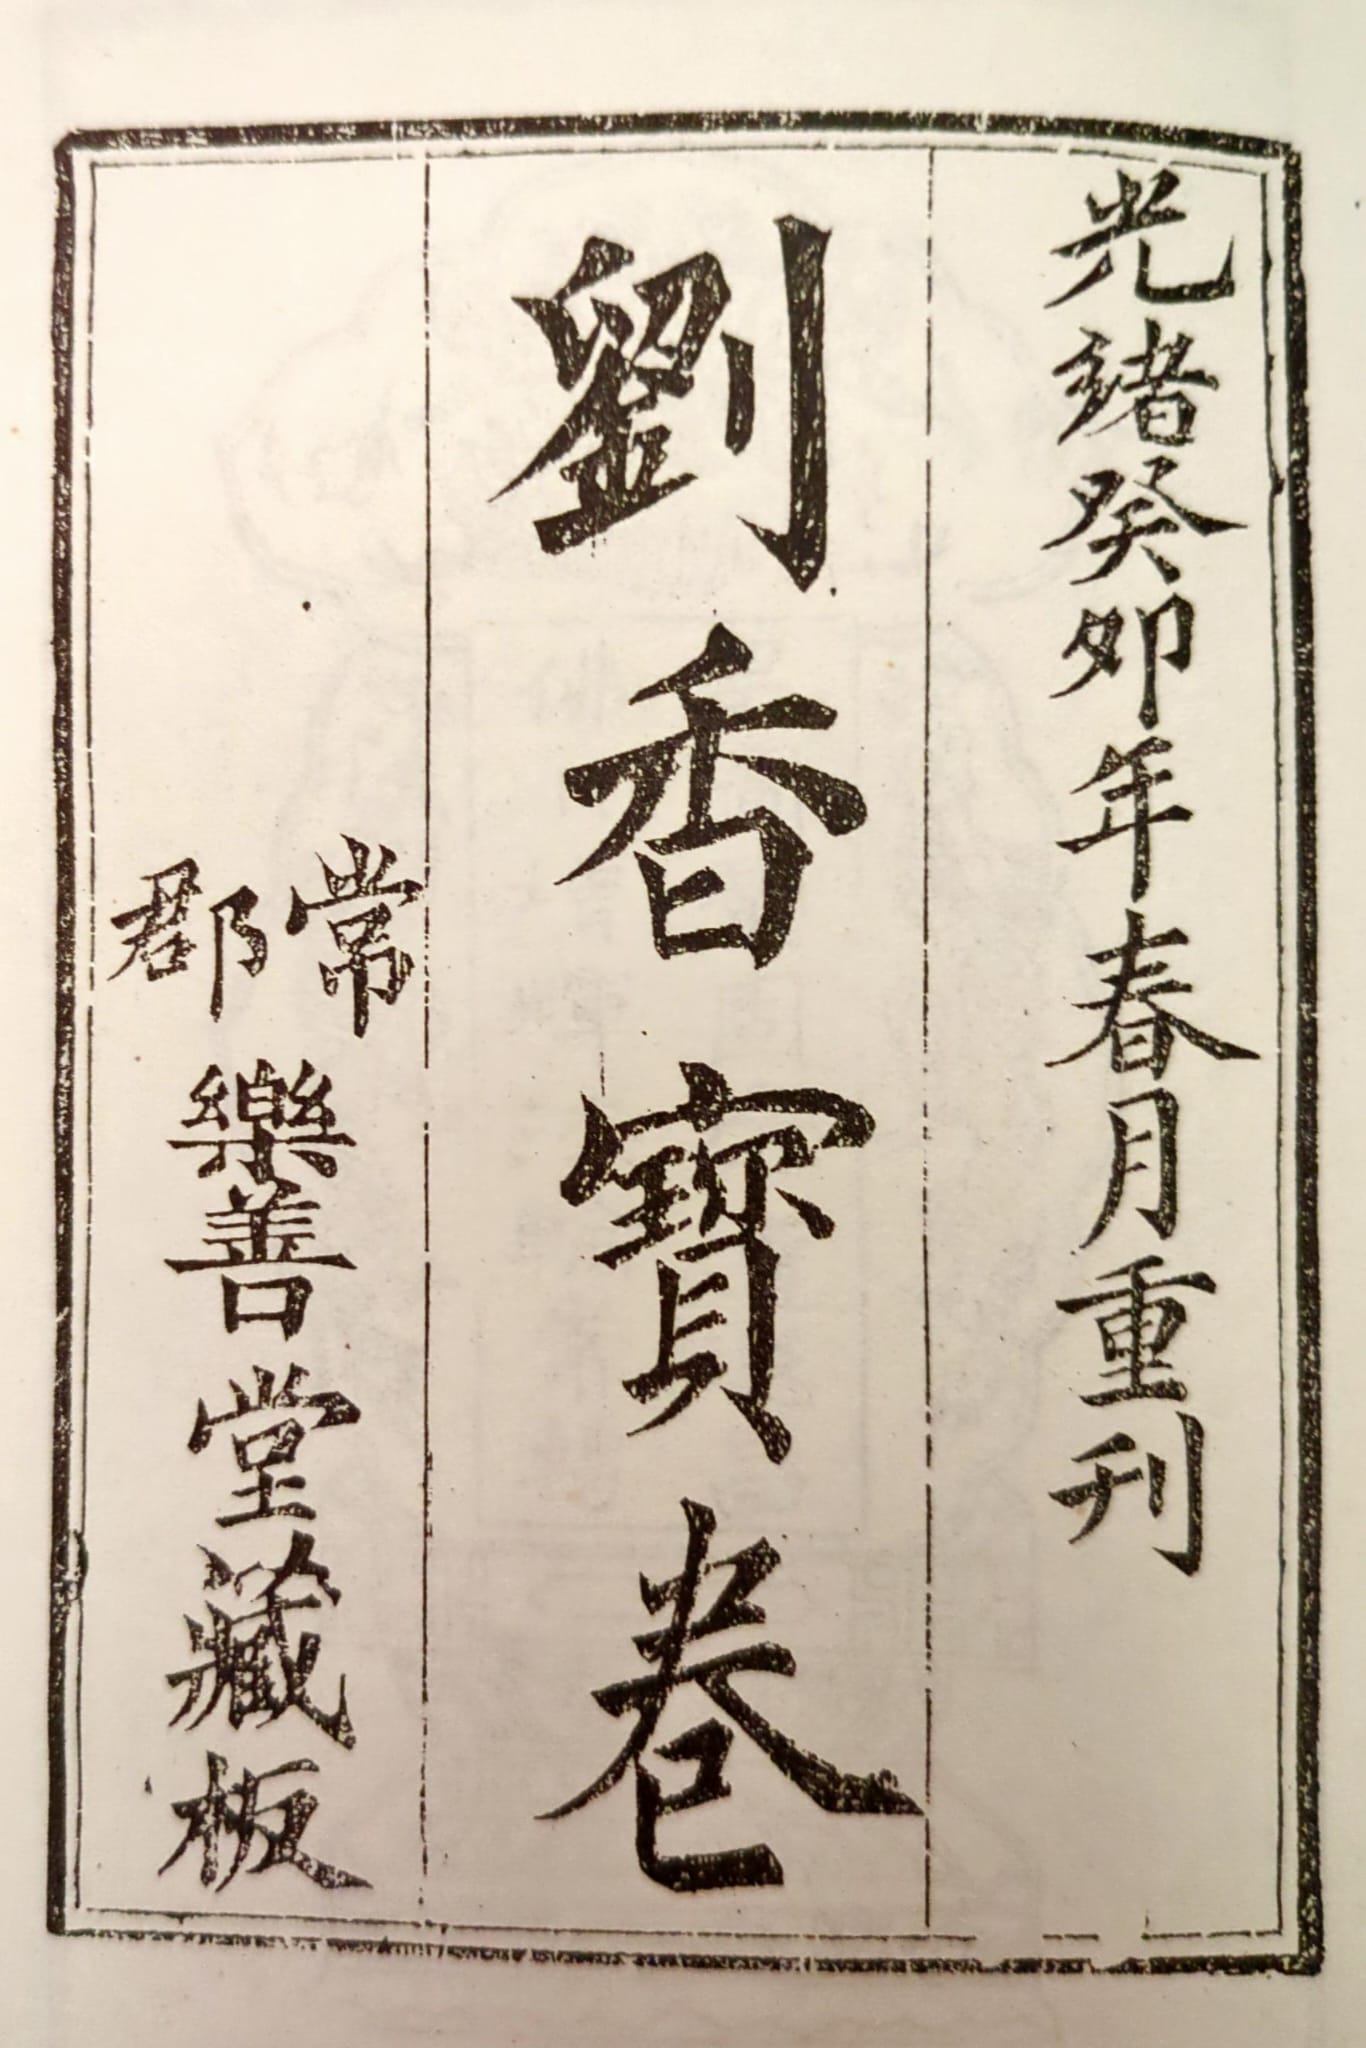 光緒癸卯年春月重刊
劉香寶卷
常郡樂善堂藏板